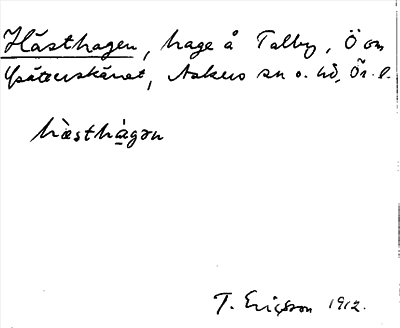 Hästhagen, hage å Talby, Ö om
kärret, Askers sn o. hd, Ör. l.
hæsthagən
T. Ericsson 1912.